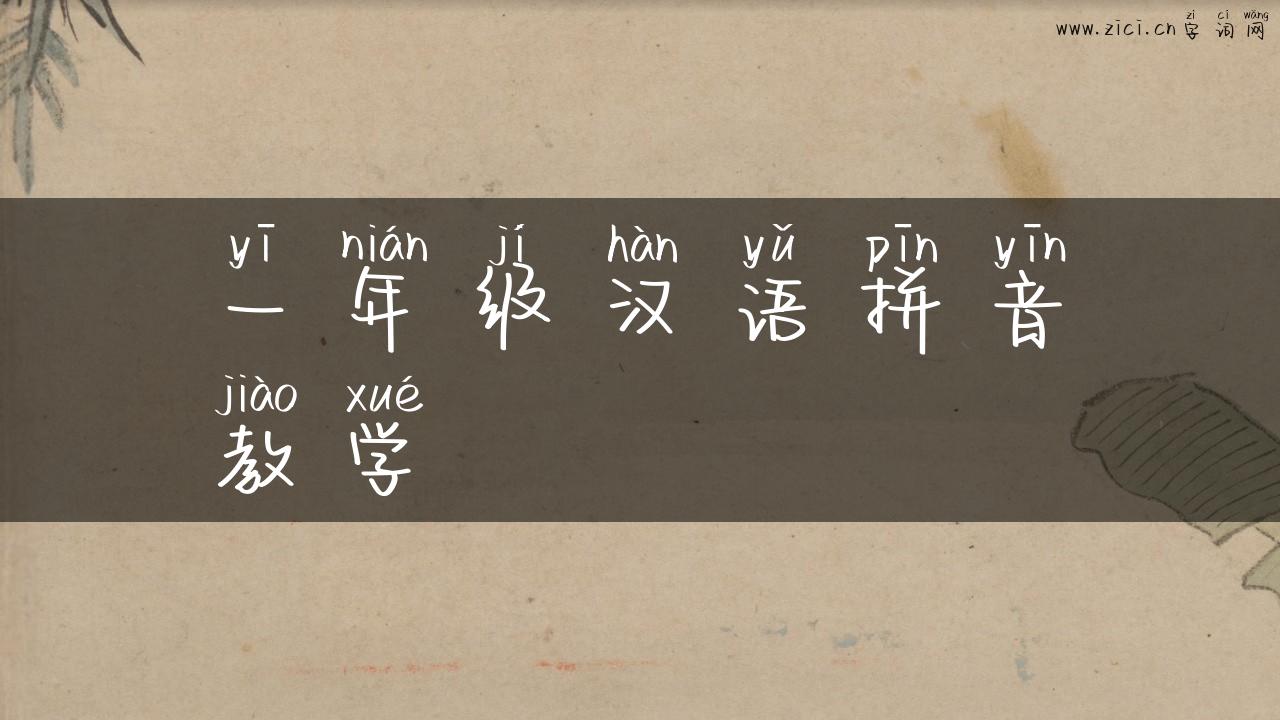 zì cí wǎng
www.zici.cn 字词网
yī nián jí hàn yǔ pīn yīn
一年级汉语拼音
jiào xué
教学